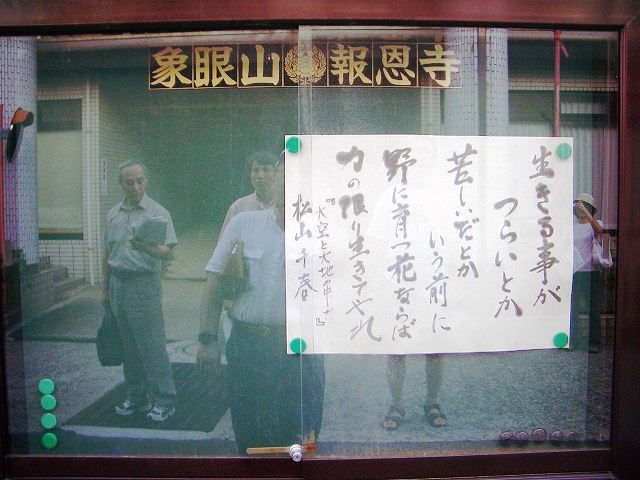 象眼山 報恩寺
生きる事が
つらいとか
苦しいだとか
いう前に
野に育つ花ならば
力の限り生きてやれ
『大空と大地の中で』
松山千春